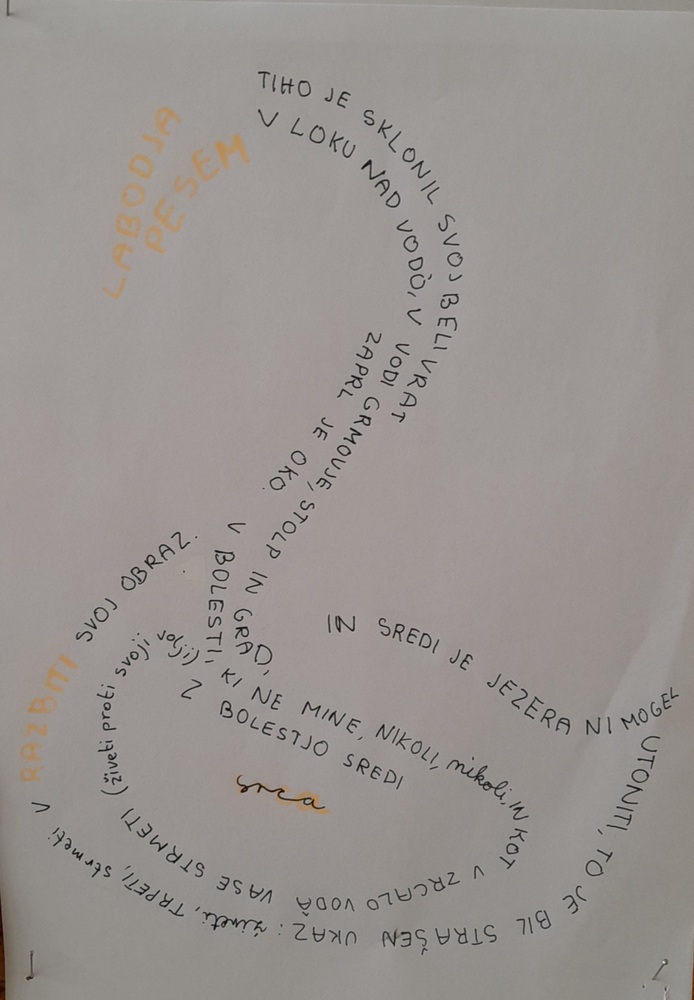 LABODJA
PESEM
TIHO JE SKLONIL SVOJ BELI VRAT
V LOKU NAD VODÒ, V VODI GRMOVJE, STOLP IN GRAD,
ZAPRL JE OKO.
V BOLESTI, KI NE MINE, NIKOLI, nikoli, IN KOT V ZRCALO VODÀ VASE STRMETI (živeti proti svoji volji)
Z BOLESTJO SREDI
srca
IN SREDI JE JEZERA NI MOGEL UTONITI, TO JE BIL STRAŠEN UKAZ: živeti, TRPETI, strmeti V RAZBITI SVOJ OBRAZ.